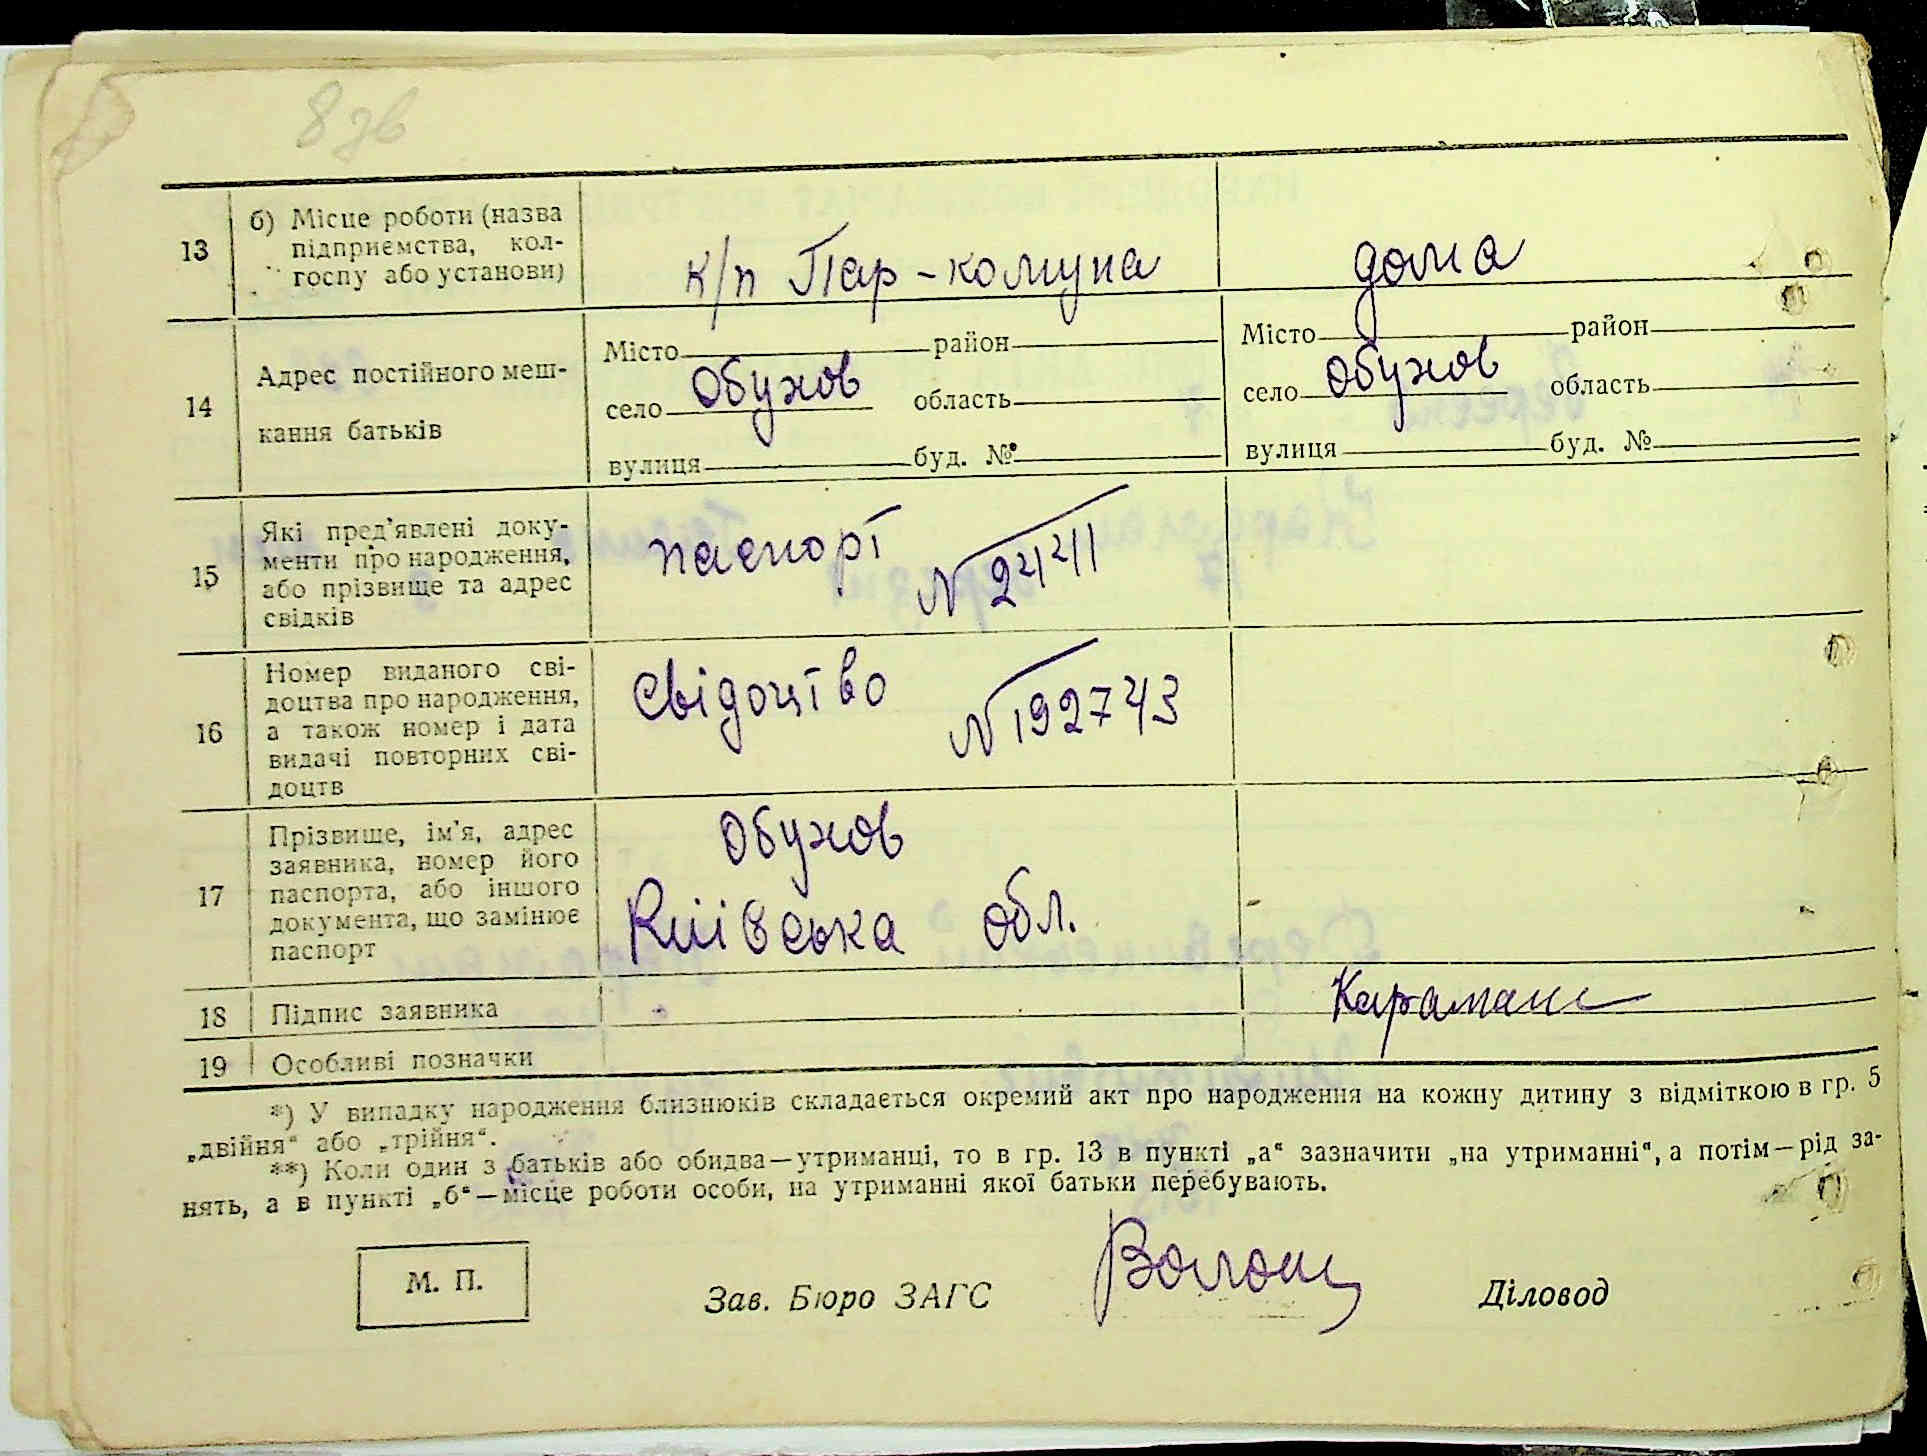 8 зв
13
б) Місце роботи (назва
підприємства, кол-
госпу або установи)
к/п Пар-комуна
дома
14
Адрес постійного меш-
кання батьків
Місто район
село Обухов область
вулиця буд. №
Місто район
село Обухов область
вулиця буд. №
15
Які пред'явлені доку-
менти про народження,
або прізвище та адрес
свідків
паспорт
N 24241
16
Номер виданого сві-
доцтва про народження,
а також номер і дата
видачі повторних сві-
доцтв
Свідоцтво
N 192743
17
Прізвище, ім'я, адрес
заявника, номер його
паспорта, або іншого
документа, що замінює
паспорт
Обухов
Київська обл.
18
Підпис заявника
Караман
19
Особливі позначки
*) У випадку народження близнюків складається окремий акт про народження на кожну дитину з відміткою в гр. 5
„двійня“ або „трійня“.
**) Коли один з батьків або обидва—утриманці, то в гр. 13 в пункті „а“ зазначити „на утриманні“, а потім—рід за-
нять, а в пункті „б“—місце роботи особи, на утриманні якої батьки перебувають.
М. П.
Зав. Бюро ЗАГС
Волощ
Діловод